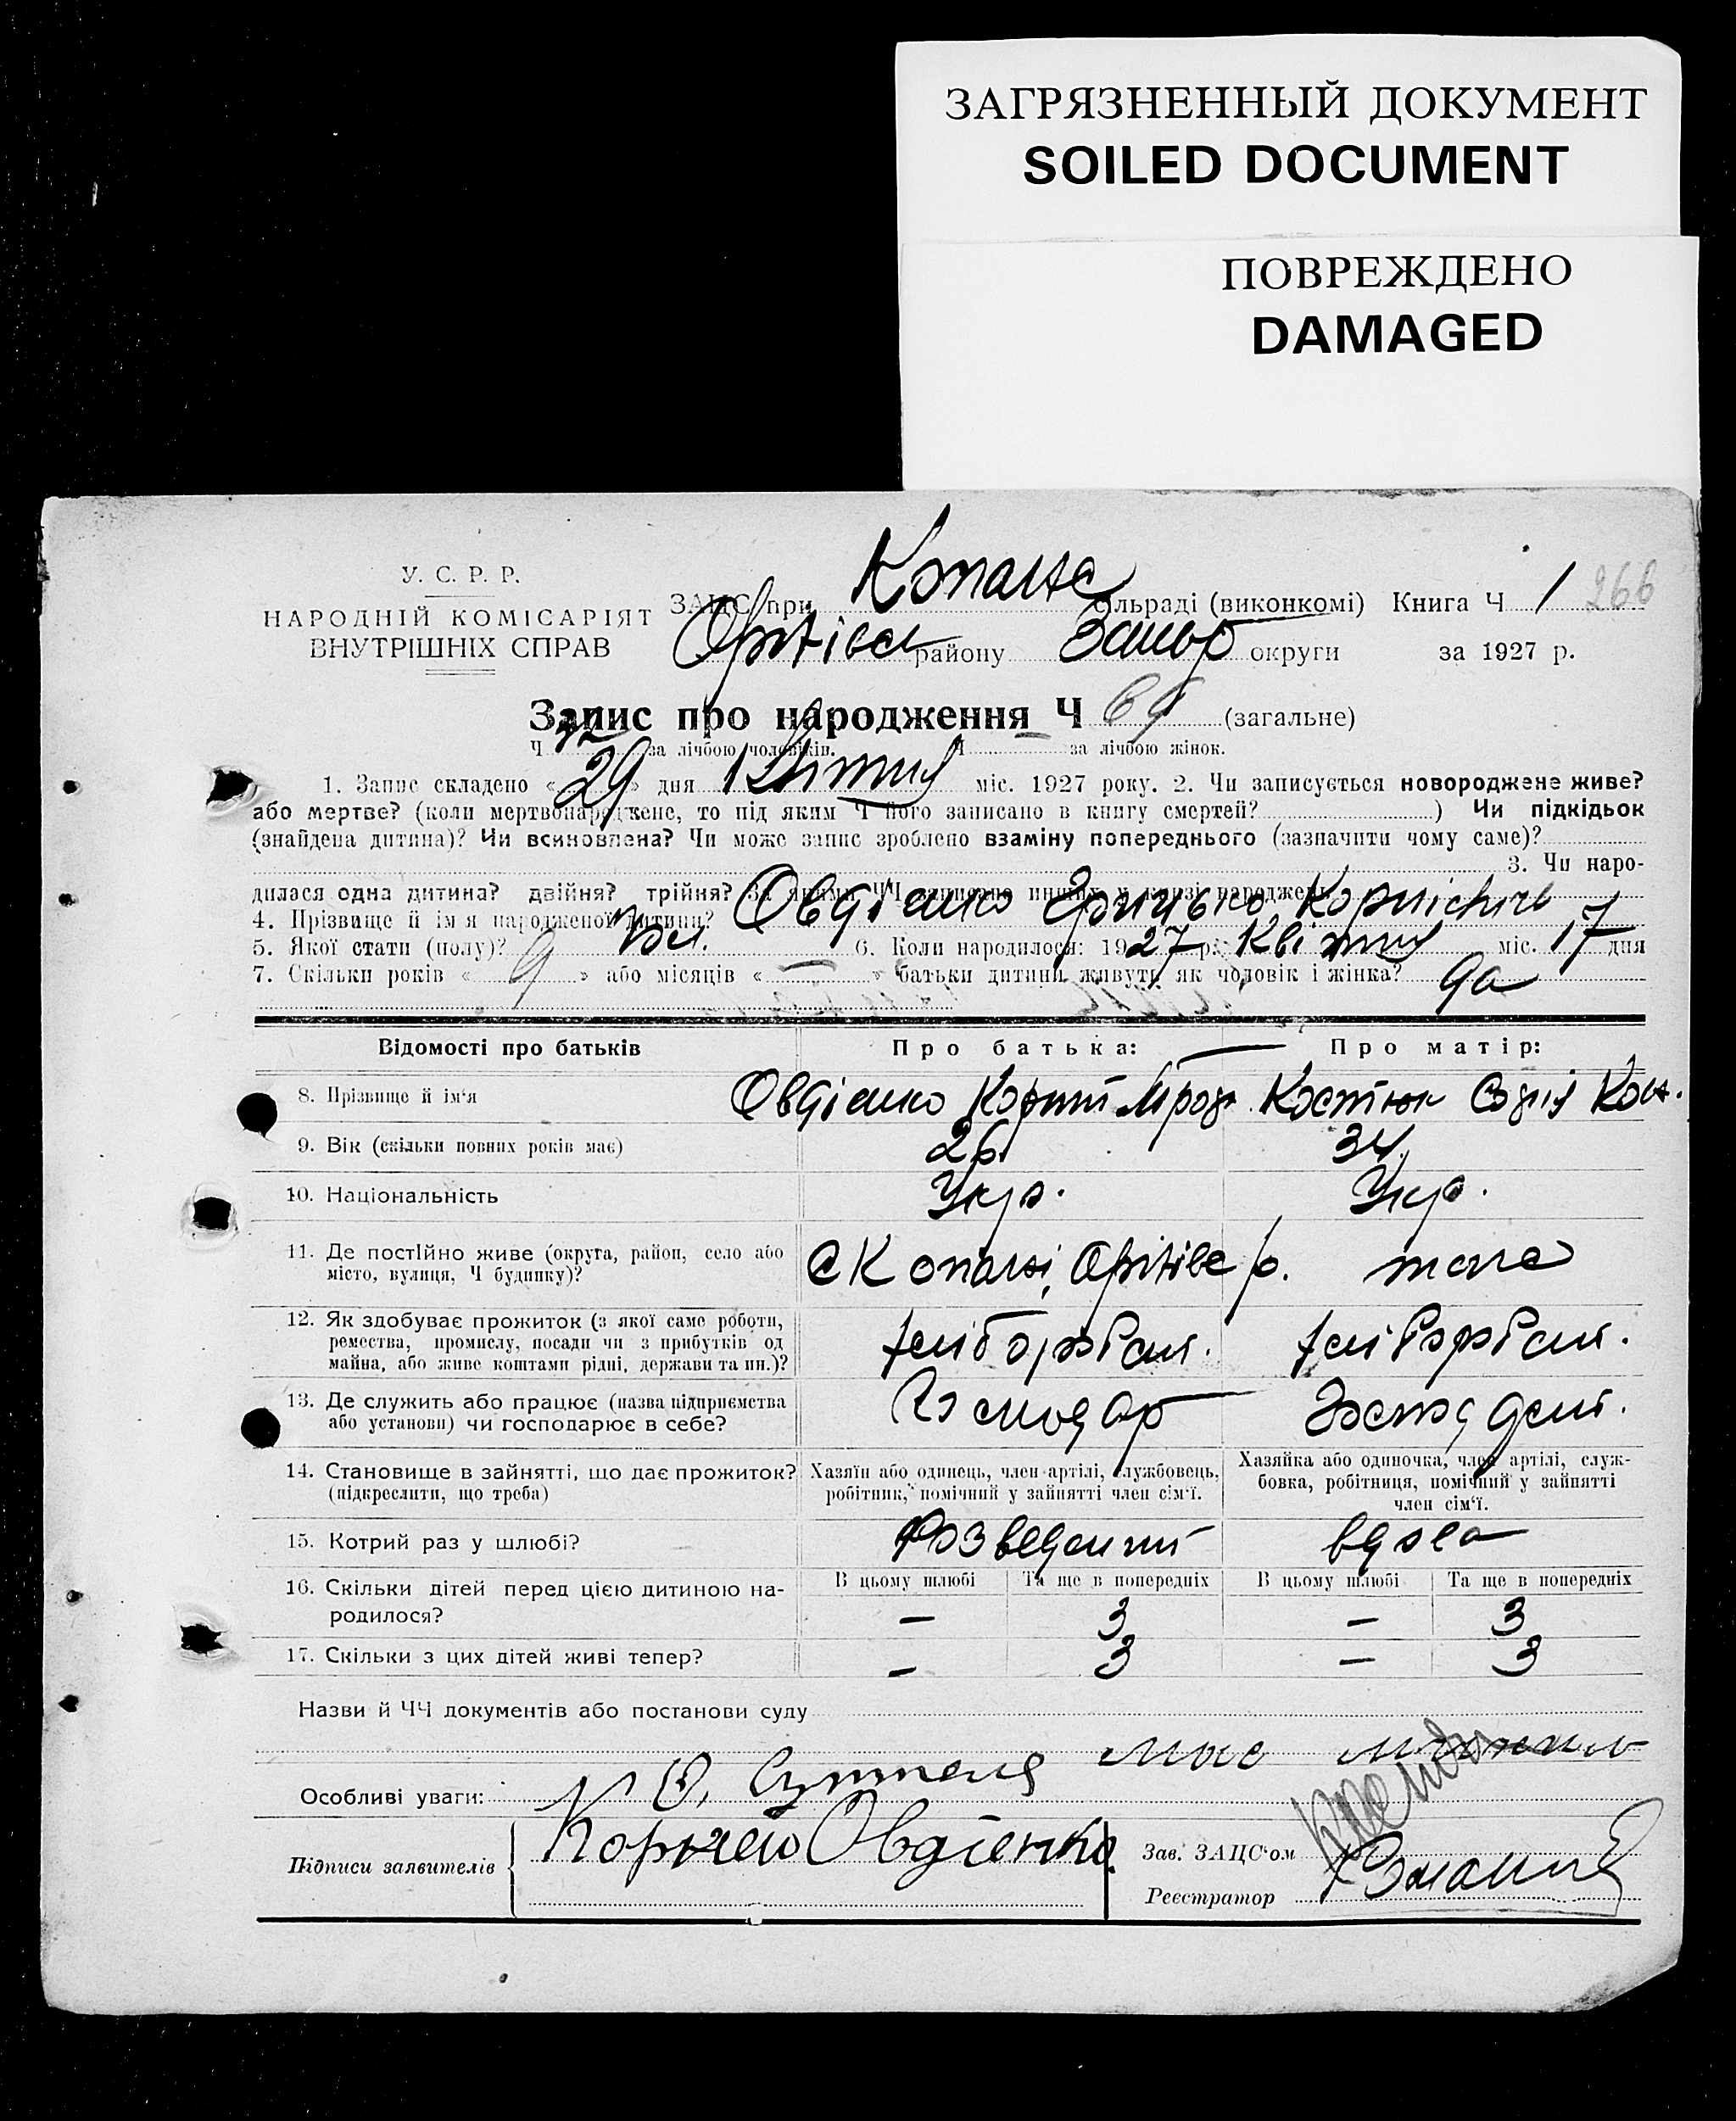 ЗАГРЯЗНЕННЫЙ ДОКУМЕНТ
SOILED DOCUMENT
ПОВРЕЖДЕНО
DAMAGED
У. С. Р. Р.
НАРОДНІЙ КОМІСАРІЯТ
ВНУТРІШНІХ СПРАВ
ЗАЦС при Копанс сільраді (виконкомі) Книга Ч 1 266
району округи за 1927 р.
Запис про народження Ч 69 (загальне)
Ч за лічбою чоловіків. Ч — за лічбою жінок.
1. Запис складено « 29 » дня Квітня міс. 1927 року. 2. Чи записується новороджене живе?
або мертве? (коли мертвонароджене, то під яким Ч його записано в книгу смертей? ) Чи підкідьок
(знайдена дитина)? Чи всиновлена? Чи може запис зроблено взаміну попереднього (зазначити чому саме)?
3. Чи наро-
дилася одна дитина? двійня? трійня? За якими ЧЧ записано инших у книзі народжень
4. Прізвище й ім'я народженої дитини? Овдієнко Грицько Корнієвич
5. Якої стати (полу)? 6. Коли народилося: 1927 р. Квітня міс. 17 дня
7. Скільки років « 9 » або місяців « — » батьки дитини живуть як чоловік і жінка? да
Відомості про батьків Про батька: Про матір:
8. Прізвище й ім'я Овдієнко Корній Костюк
9. Вік (скільки повних років має) 26 34
10. Національність Укр. Укр.
11. Де постійно живе (округа, район, село або
місто, вулиця, Ч будинку)? С Копані, р. тоже
12. Як здобуває прожиток (з якої саме роботи,
ремества, промислу, посади чи з прибутків од
майна, або живе коштами рідні, держави та ин.)?
хліборобсн. хліборобсн.
13. Де служить або працює (назва підприємства
або установи) чи господарює в себе? Господар
14. Становище в зайнятті, що дає прожиток?
(підкреслити, що треба)
Хазяїн або одинець, член артілі, службовець,
робітник, помічний у зайнятті член сім'ї.
Хазяйка або одиночка, член артілі, служ-
бовка, робітниця, помічний у зайнятті
член сім'ї.
15. Котрий раз у шлюбі? Розведений вдова
16. Скільки дітей перед цією дитиною на-
родилося?
В цьому шлюбі Та ще в попередніх В цьому шлюбі Та ще в попередніх
— 3 — 3
17. Скільки з цих дітей живі тепер? — 3 — 3
Назви й ЧЧ документів або постанови суду
Особливі уваги:
Підписи заявителів Корней Овдіенко
Зав. ЗАЦС'ом
Реєстратор